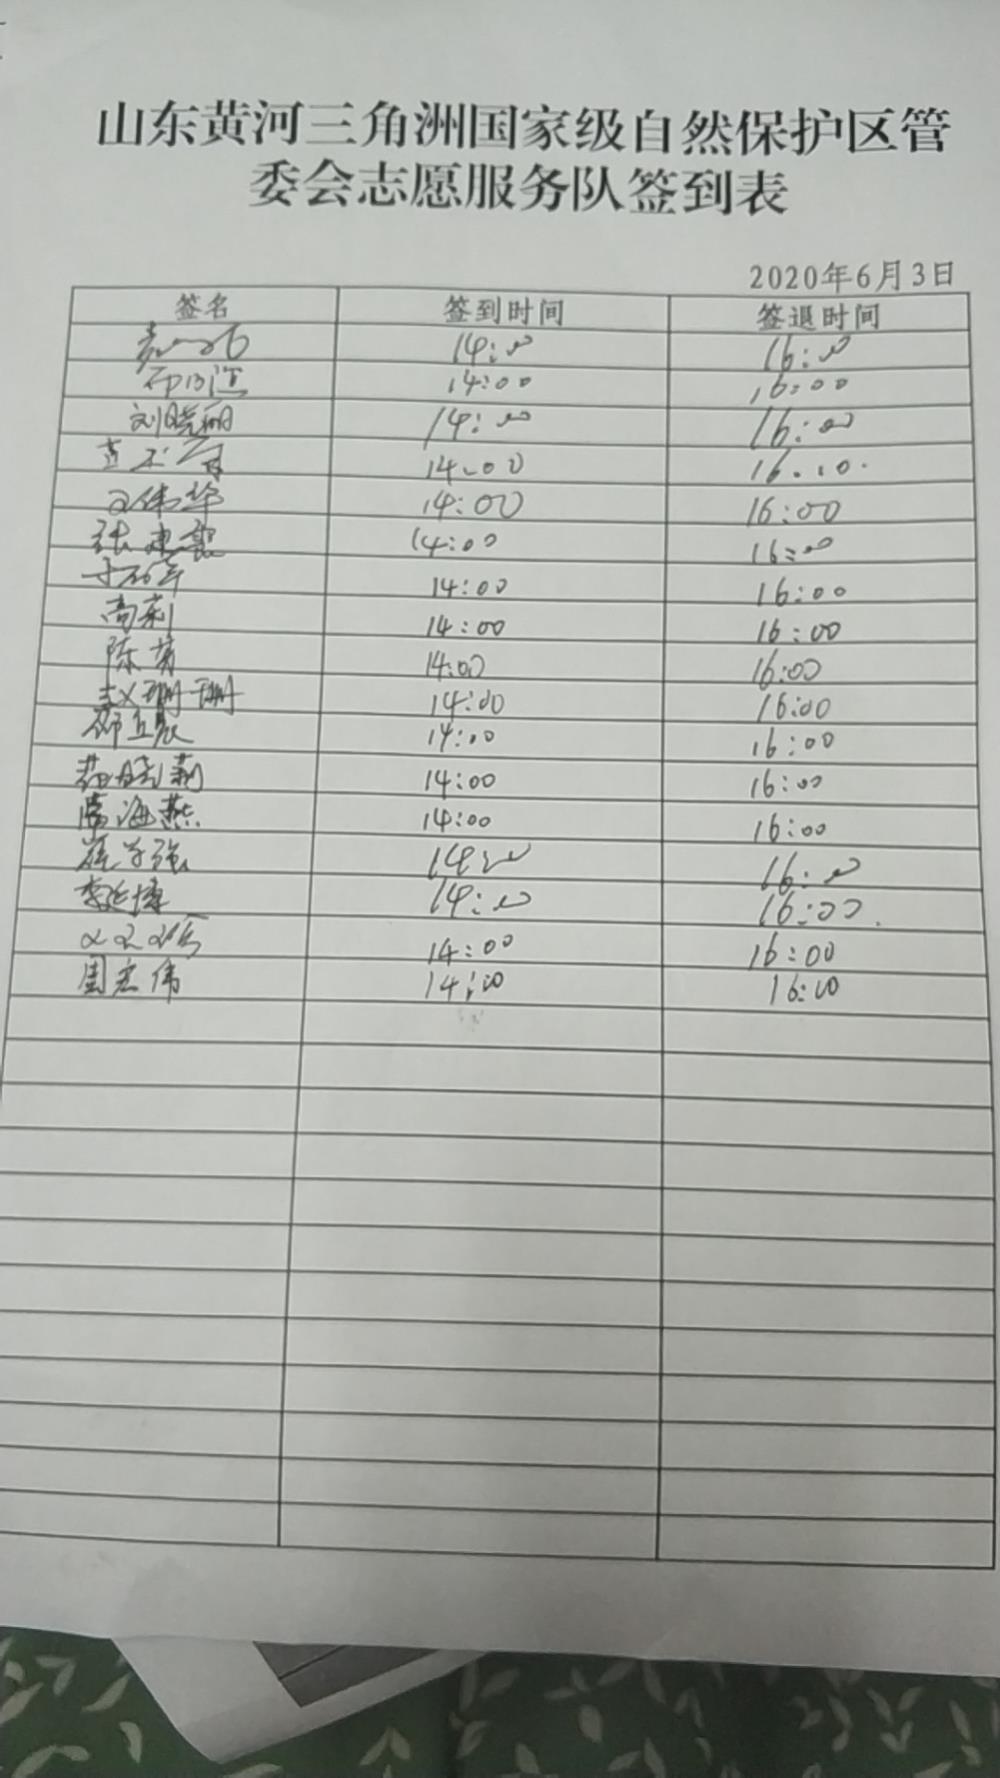 山东黄河三角洲国家级自然保护区管
委会志愿服务队签到表
2020年6月3日
签名 签到时间 签退时间
14:00 16:00
14:00 16:00
刘晓丽 14:00 16:00
14:00 16:00
14:00 16:00
张建 14:00 16:00
14:00 16:00
尚莉 14:00 16:00
陈芳 14:00 16:00
赵珊珊 14:00 16:00
14:00 16:00
晓莉 14:00 16:00
常海燕 14:00 16:00
14:00 16:00
李延博 14:00 16:00
14:00 16:00
周宏伟 14:00 16:00